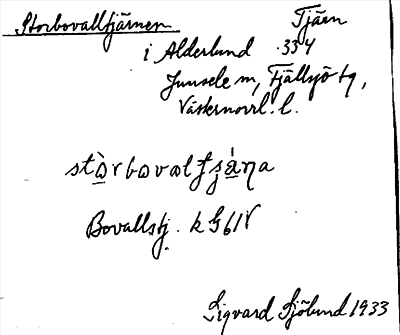 Storbovalltjärnen Tjärn
i Alderlund 334
Junsele sn, Fjällsjö tg,
Västernorrl. l.
Bovallstj. k G61V
Sigvard Sjölund 1933